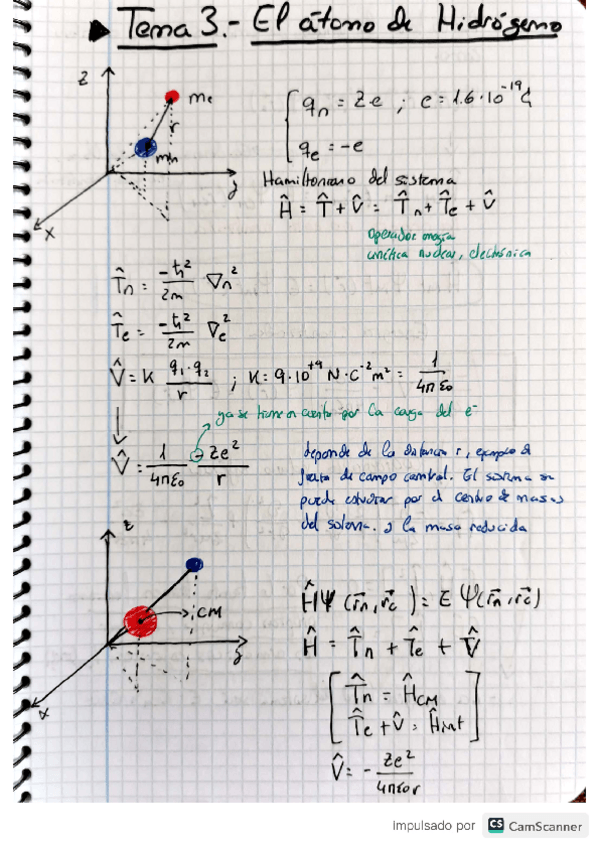 ▶ Tema 3.- El átomo de Hidrógeno
z
me
r
mn
y
x
qn = Ze ; e = 1.6·10⁻¹⁹ C
qe = -e
Hamiltoniano del sistema
Ĥ = T̂ + V̂ = T̂n + T̂e + V̂
operador energía
cinética nuclear, electrónica
T̂n = -ħ²/2m ∇n²
T̂e = -ħ²/2m ∇e²
V̂ = K q₁·q₂/r ; K = 9·10⁺⁹ N·C⁻² m² = 1/4πε₀
ya se tiene en cuenta por la carga del e⁻
V̂ = 1/4πε₀ - Ze²/r
depende de la distancia r, ejemplo de
fuerza de campo central. El sistema se
puede estudiar por el centro de masas
del sistema. y la masa reducida
z
CM
y
x
ĤΨ(r⃗n, r⃗e) = E Ψ(r⃗n, r⃗e)
Ĥ = T̂n + T̂e + V̂
T̂n = ĤCM
T̂e + V̂ = Ĥint
V̂ = - Ze²/4πε₀r
Impulsado por CS CamScanner